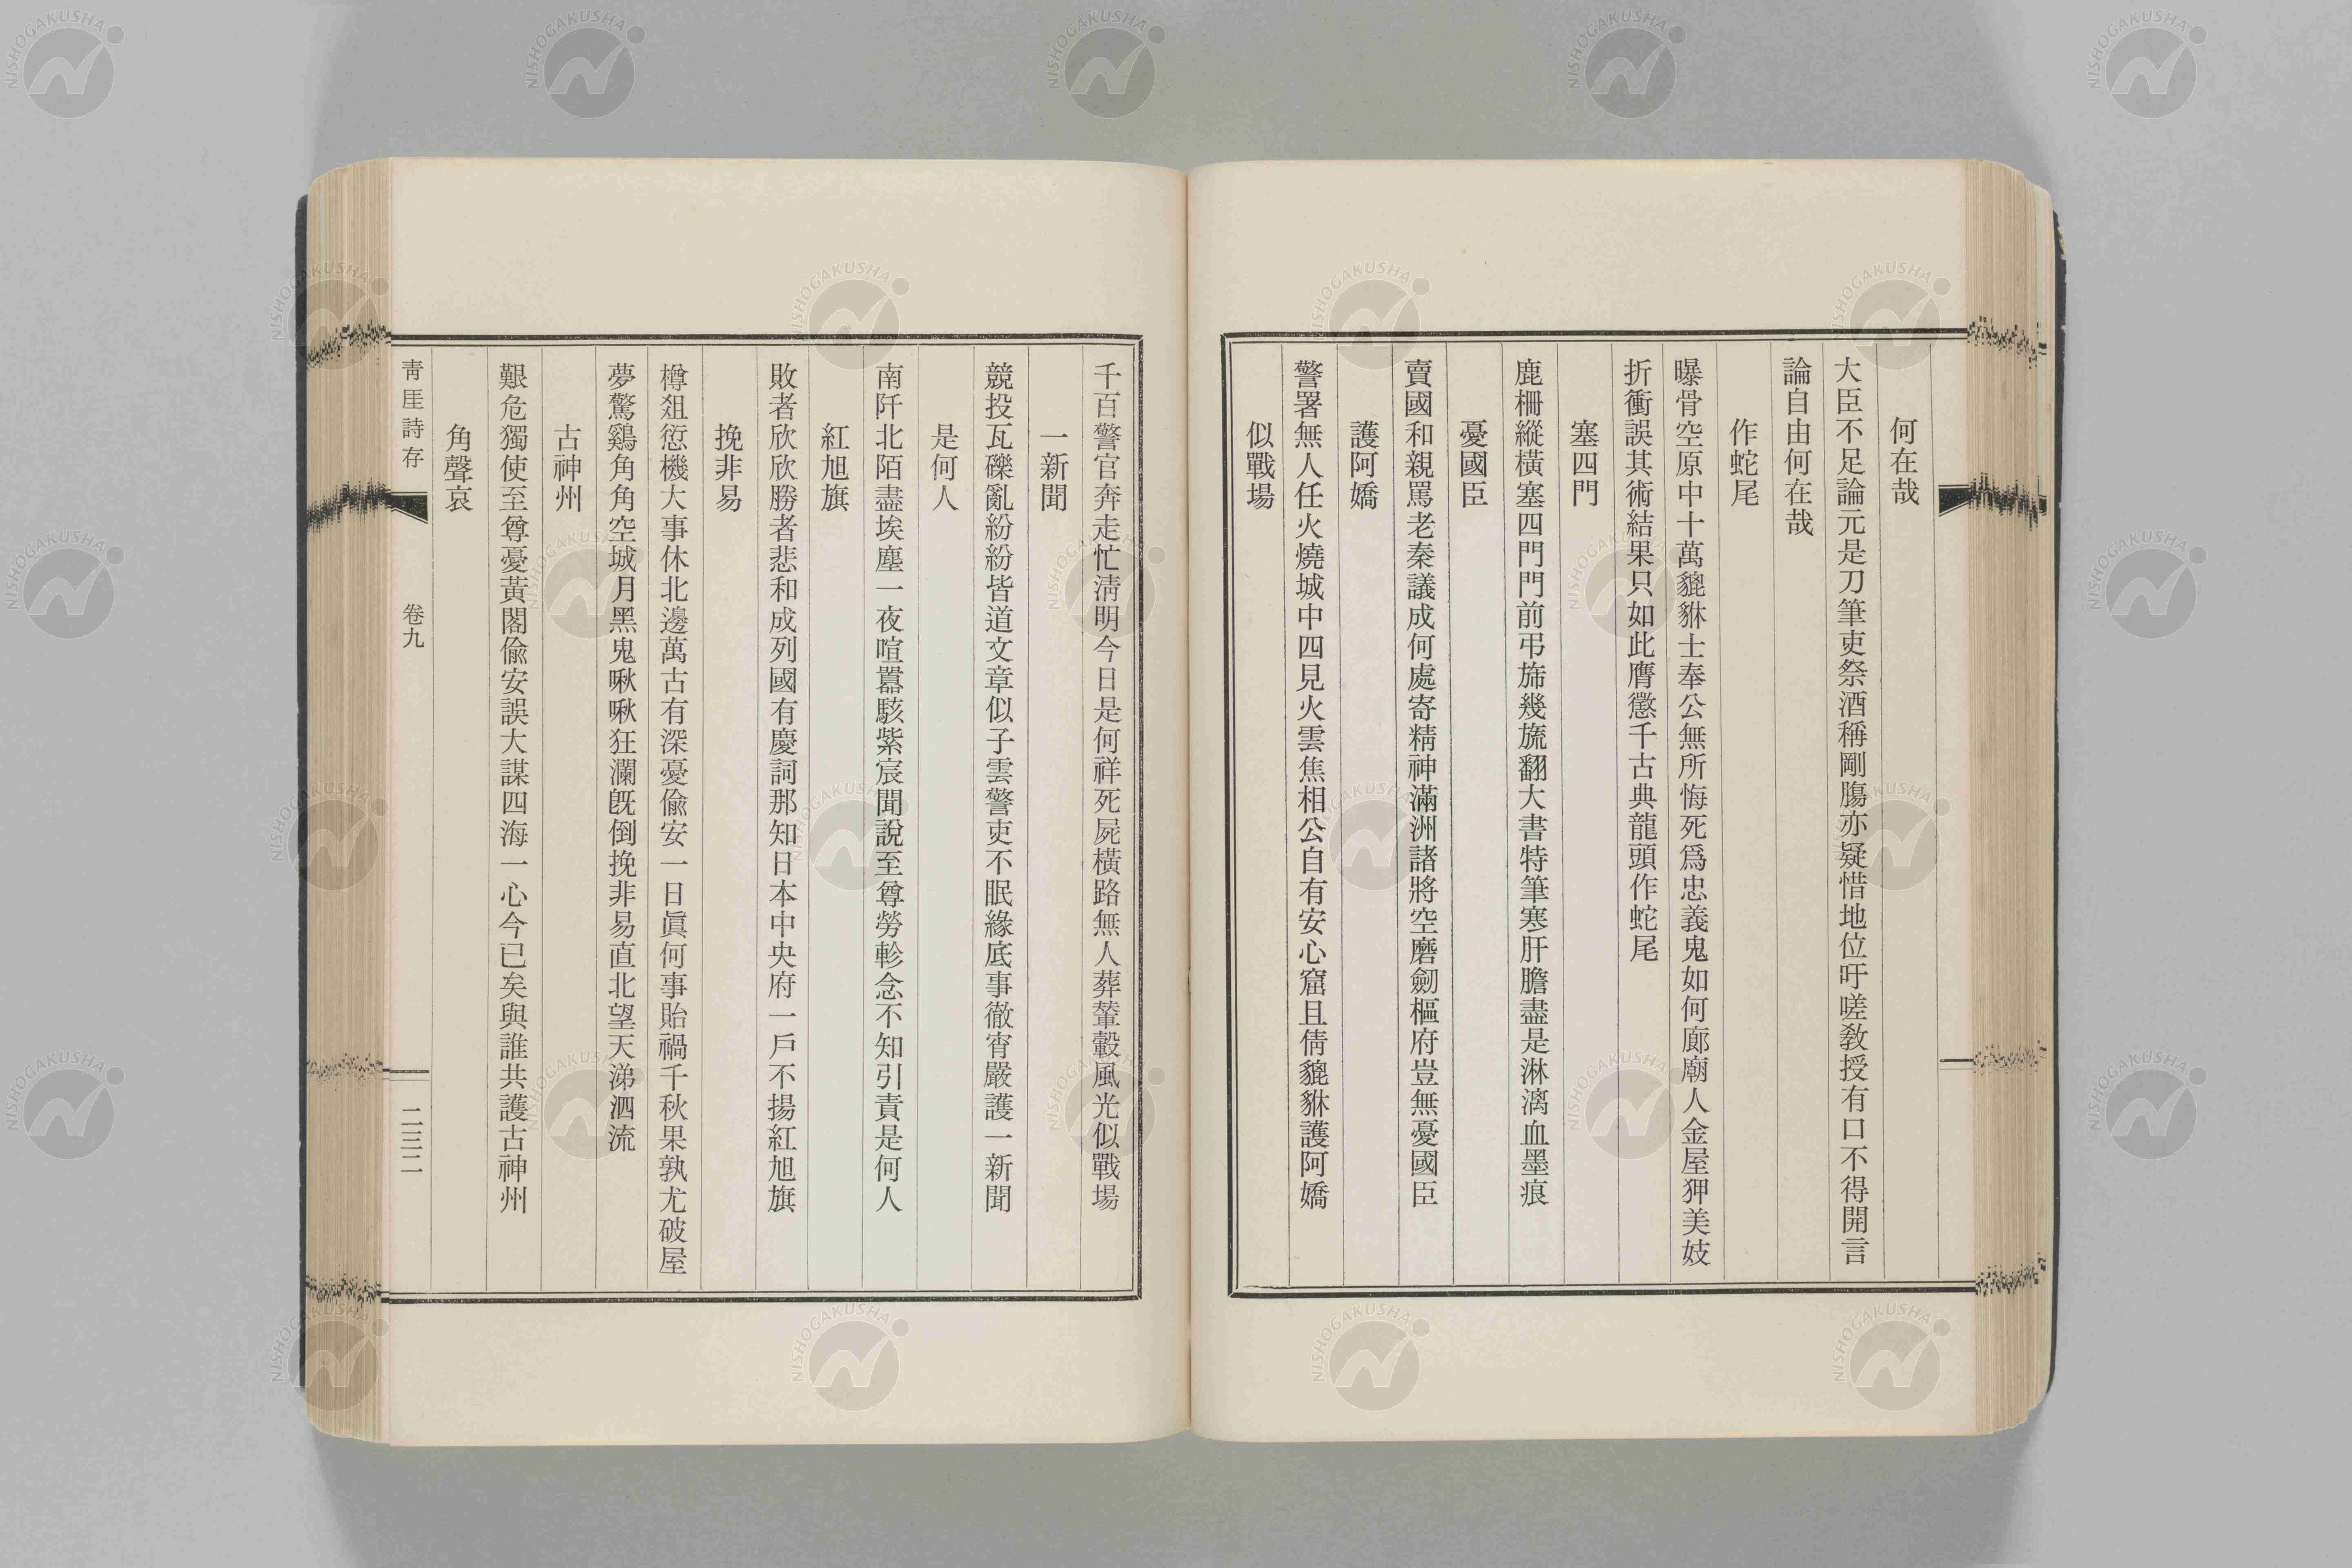 何在哉
大臣不足論元是刀筆吏祭酒稱剛膓亦疑惜地位吁嗟敎授有口不得開言
論自由何在哉
作蛇尾
曝骨空原中十萬貔貅士奉公無所悔死爲忠義鬼如何廊廟人金屋狎美妓
折衝誤其術結果只如此膺懲千古典龍頭作蛇尾
塞四門
鹿柵縱橫塞四門門前弔旆幾旒翻大書特筆寒肝膽盡是淋漓血墨痕
憂國臣
賣國和親罵老秦議成何處寄精神滿洲諸將空磨劒樞府豈無憂國臣
護阿嬌
警署無人任火燒城中四見火雲焦相公自有安心窟且倩貔貅護阿嬌
似戰場
千百警官奔走忙淸明今日是何祥死屍橫路無人葬輦轂風光似戰場
一新聞
競投瓦礫亂紛紛皆道文章似子雲警吏不眠緣底事徹宵嚴護一新聞
是何人
南阡北陌盡埃塵一夜喧囂駭紫宸聞說至尊勞軫念不知引責是何人
紅旭旗
敗者欣欣勝者悲和成列國有慶詞那知日本中央府一戶不揚紅旭旗
挽非易
樽俎愆機大事休北邊萬古有深憂偸安一日眞何事貽禍千秋果孰尤破屋
夢驚鷄角角空城月黑鬼啾啾狂瀾旣倒挽非易直北望天涕泗流
古神州
艱危獨使至尊憂黃閣偸安誤大謀四海一心今已矣與誰共護古神州
角聲哀
靑厓詩存
卷九
二三二
NISHOGAKUSHA